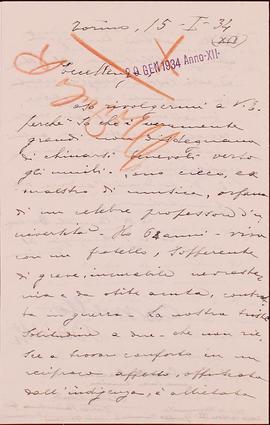 Torino, 15-I-34
(XII)
Eccellenza
20 GEN 1934 Anno-XII-
rivolgermi a V. E.
perché so che i veramente
grandi non disdegnano
di chinarsi benevoli verso
gli umili. cieco, ex
maestro di musica, orfano
di un celebre professor d'u
niversità. Ho 62 anni - vivo
con un fratello, sofferente
di grave, immutabile nevraste
nia e da otite acuta, contrat
ta in guerra. La nostra triste
solitudine a due - che non rie
sce a trovar conforto in un
reciproco affetto, offuscato
dall'indigenza, è allietata